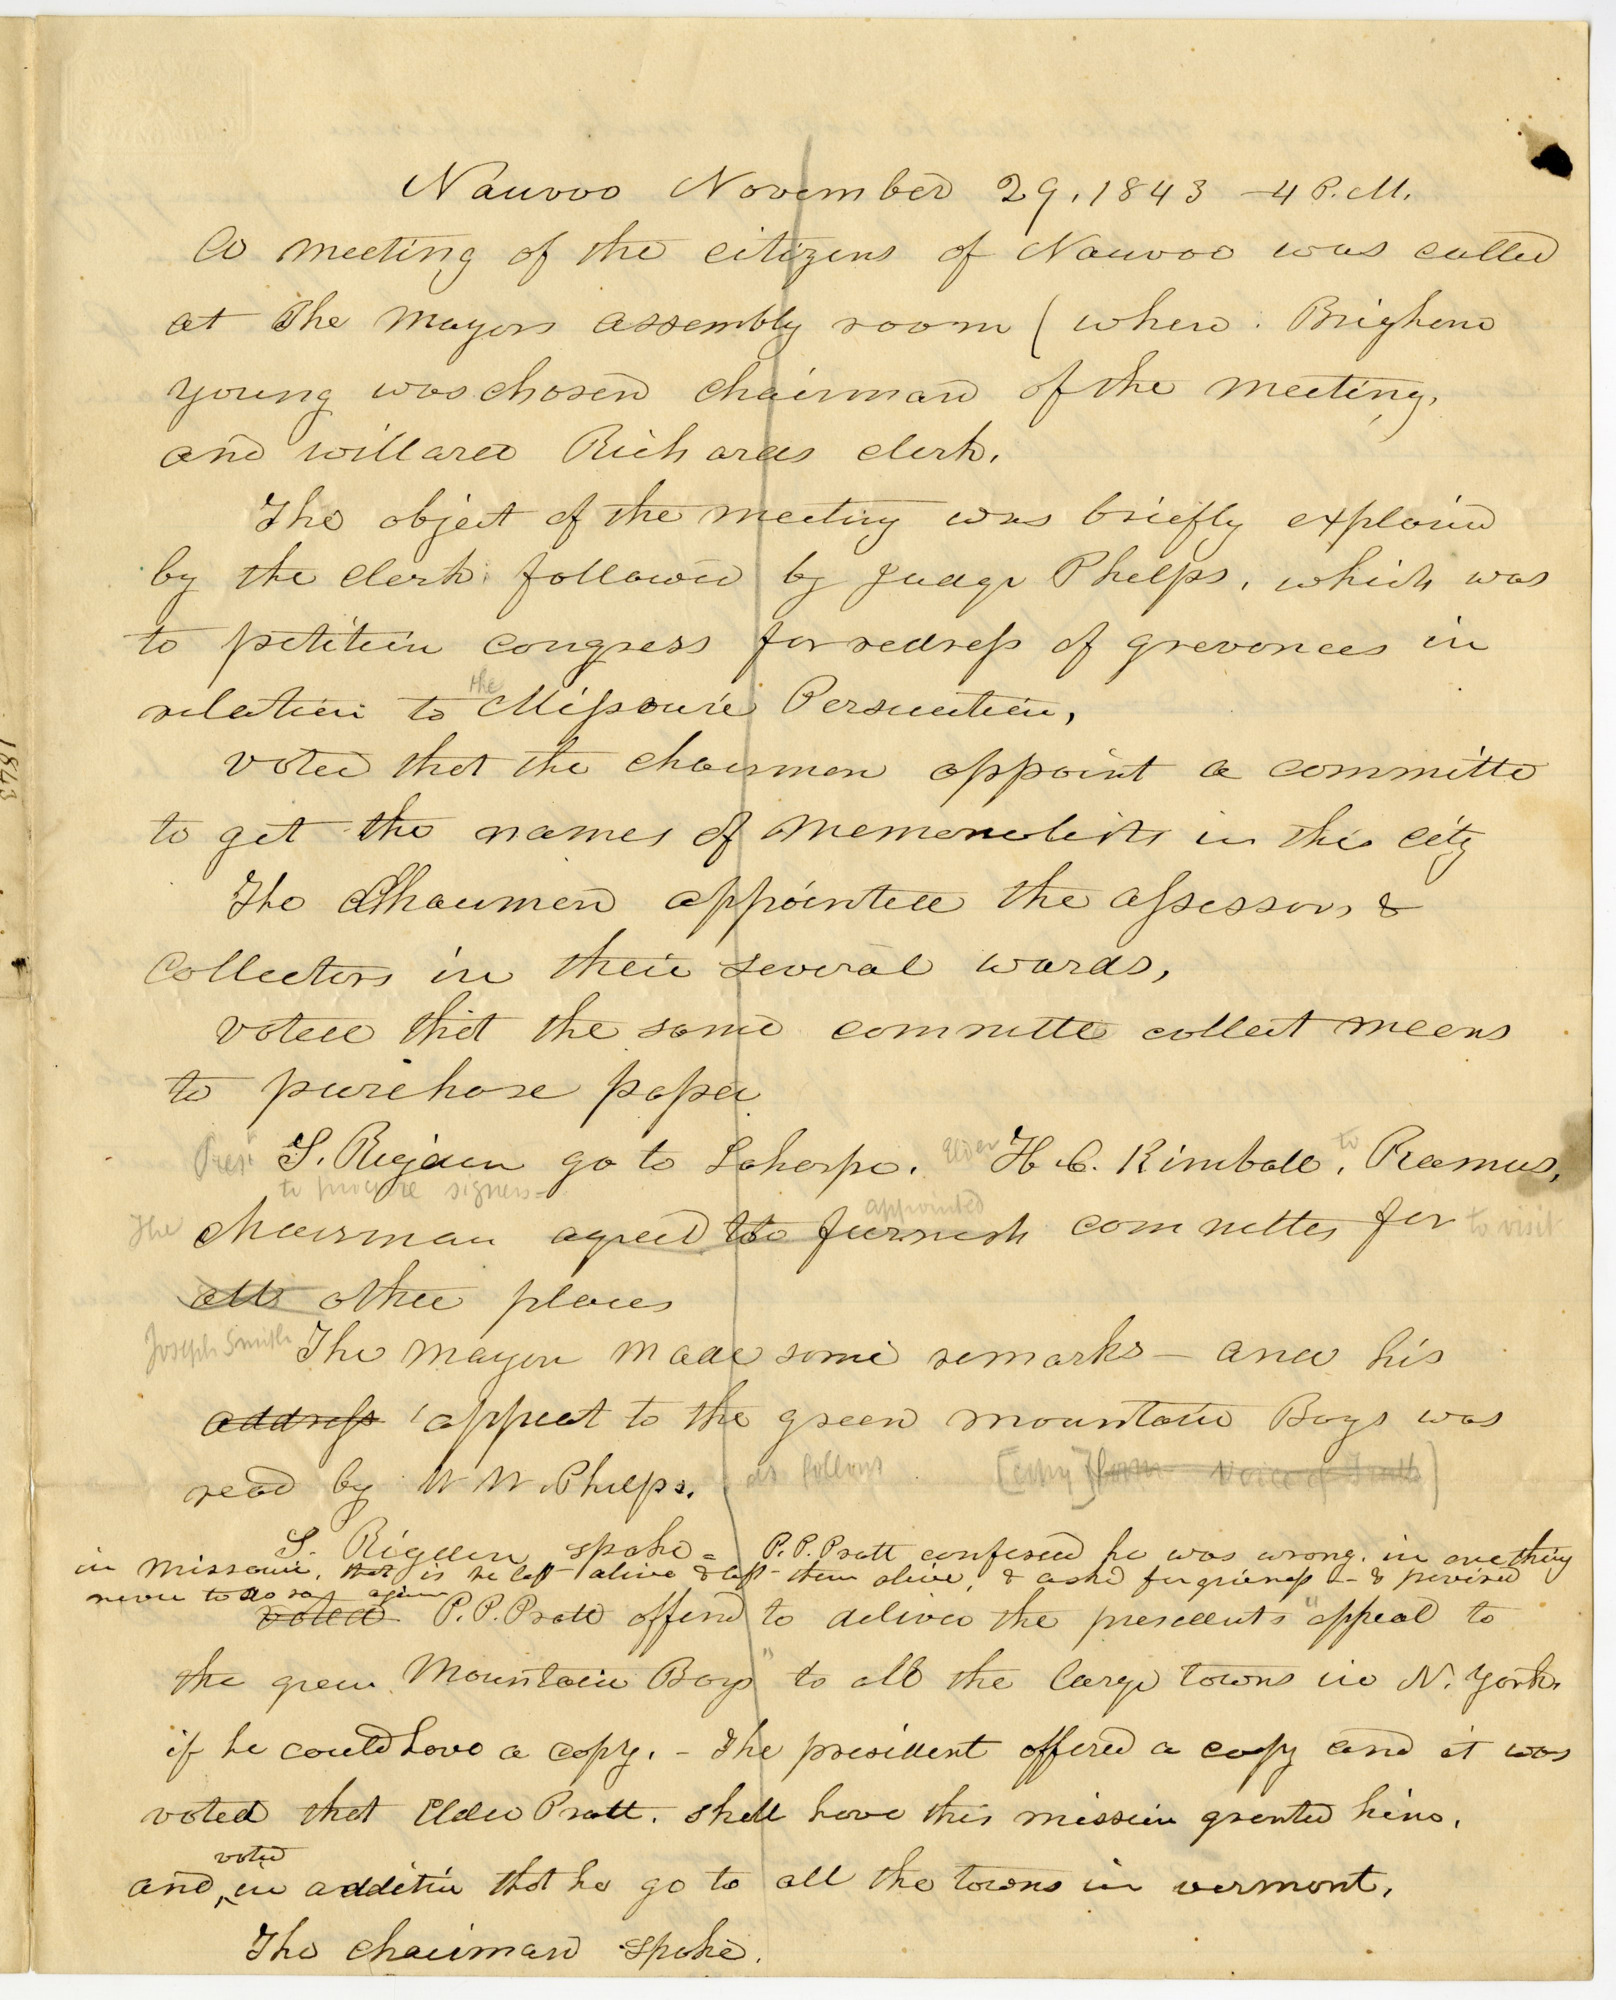 Nauvoo November 29, 1843 — 4 P.M.
A meeting of the citizens of Nauvoo was called
at the Mayors assembly room (where. Brigham
young was chosen chairman of the meeting,
and willard Richards clerk.
The object of the meeting was briefly explaind
by the clerk. followed by Judge Phelps, which was
to petition congress for redress of grevances in
the
relation to Missouri Persecution,
voted that the chairman appoint a committe
to get the names of memorialists in this city
The Chairman appointed the assessors &
collectors in their several wards,
voted that the same committe collect means
to purchase paper
Prest S. Rigdon go to Laharpe. Elder H. C. Kimball, to Ramus,
to procure signers—
appointed
The chairman agreed to furnish committes for to visit
all other places
Joseph Smith The mayor made some remarks — and his
address 'appeal to the green mountain Boys was
read by W W. Phelps. as follows [copy] from Voice of Truth]
S. Rigdon spoke = P. P. Pratt confessed he was wrong. in one thing
in Missouri, that is he left alive & left them alive, & asked forgiveness — & promised
never to do so again
voted P. P. Pratt offerd to deliver the presedents "appeal to
the green Mountain Boys" to all the large towns in N. York,
if he could have a copy. – The president offered a copy and it was
voted that Elder Pratt. shall have this mission granted him.
voted
and, in additin that he go to all the towns in vermont.
The chairman spoke.
1843